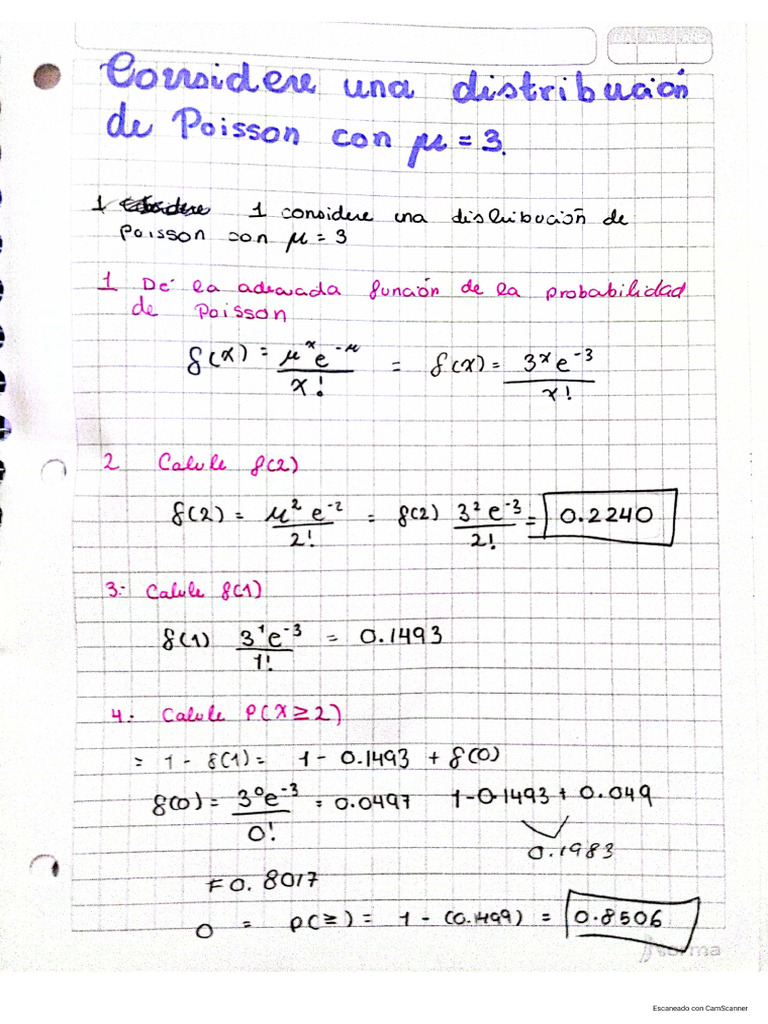 Considere una distribución
de Poisson con μ = 3.
1 1 considere una distribución de
Poisson con μ = 3
1 De la adecuada función de la probabilidad
de Poisson
f(x) = μ^x e^-μ / x! = f(x) = 3^x e^-3 / x!
2 Calule f(2)
f(2) = μ^2 e^-2 / 2! = f(2) 3^2 e^-3 / 2! = 0.2240
3.- Calule f(1)
f(1) 3^1 e^-3 / 1! = 0.1493
4.- Calule P(X ≥ 2)
= 1 - f(1) = 1 - 0.1493 + f(0)
f(0) = 3^0 e^-3 / 0! = 0.0497 1-0.1493 + 0.049
0.1983
= 0.8017
0 = P(≥) = 1 - (0.1499) = 0.8506
Norma
Escaneado con CamScanner